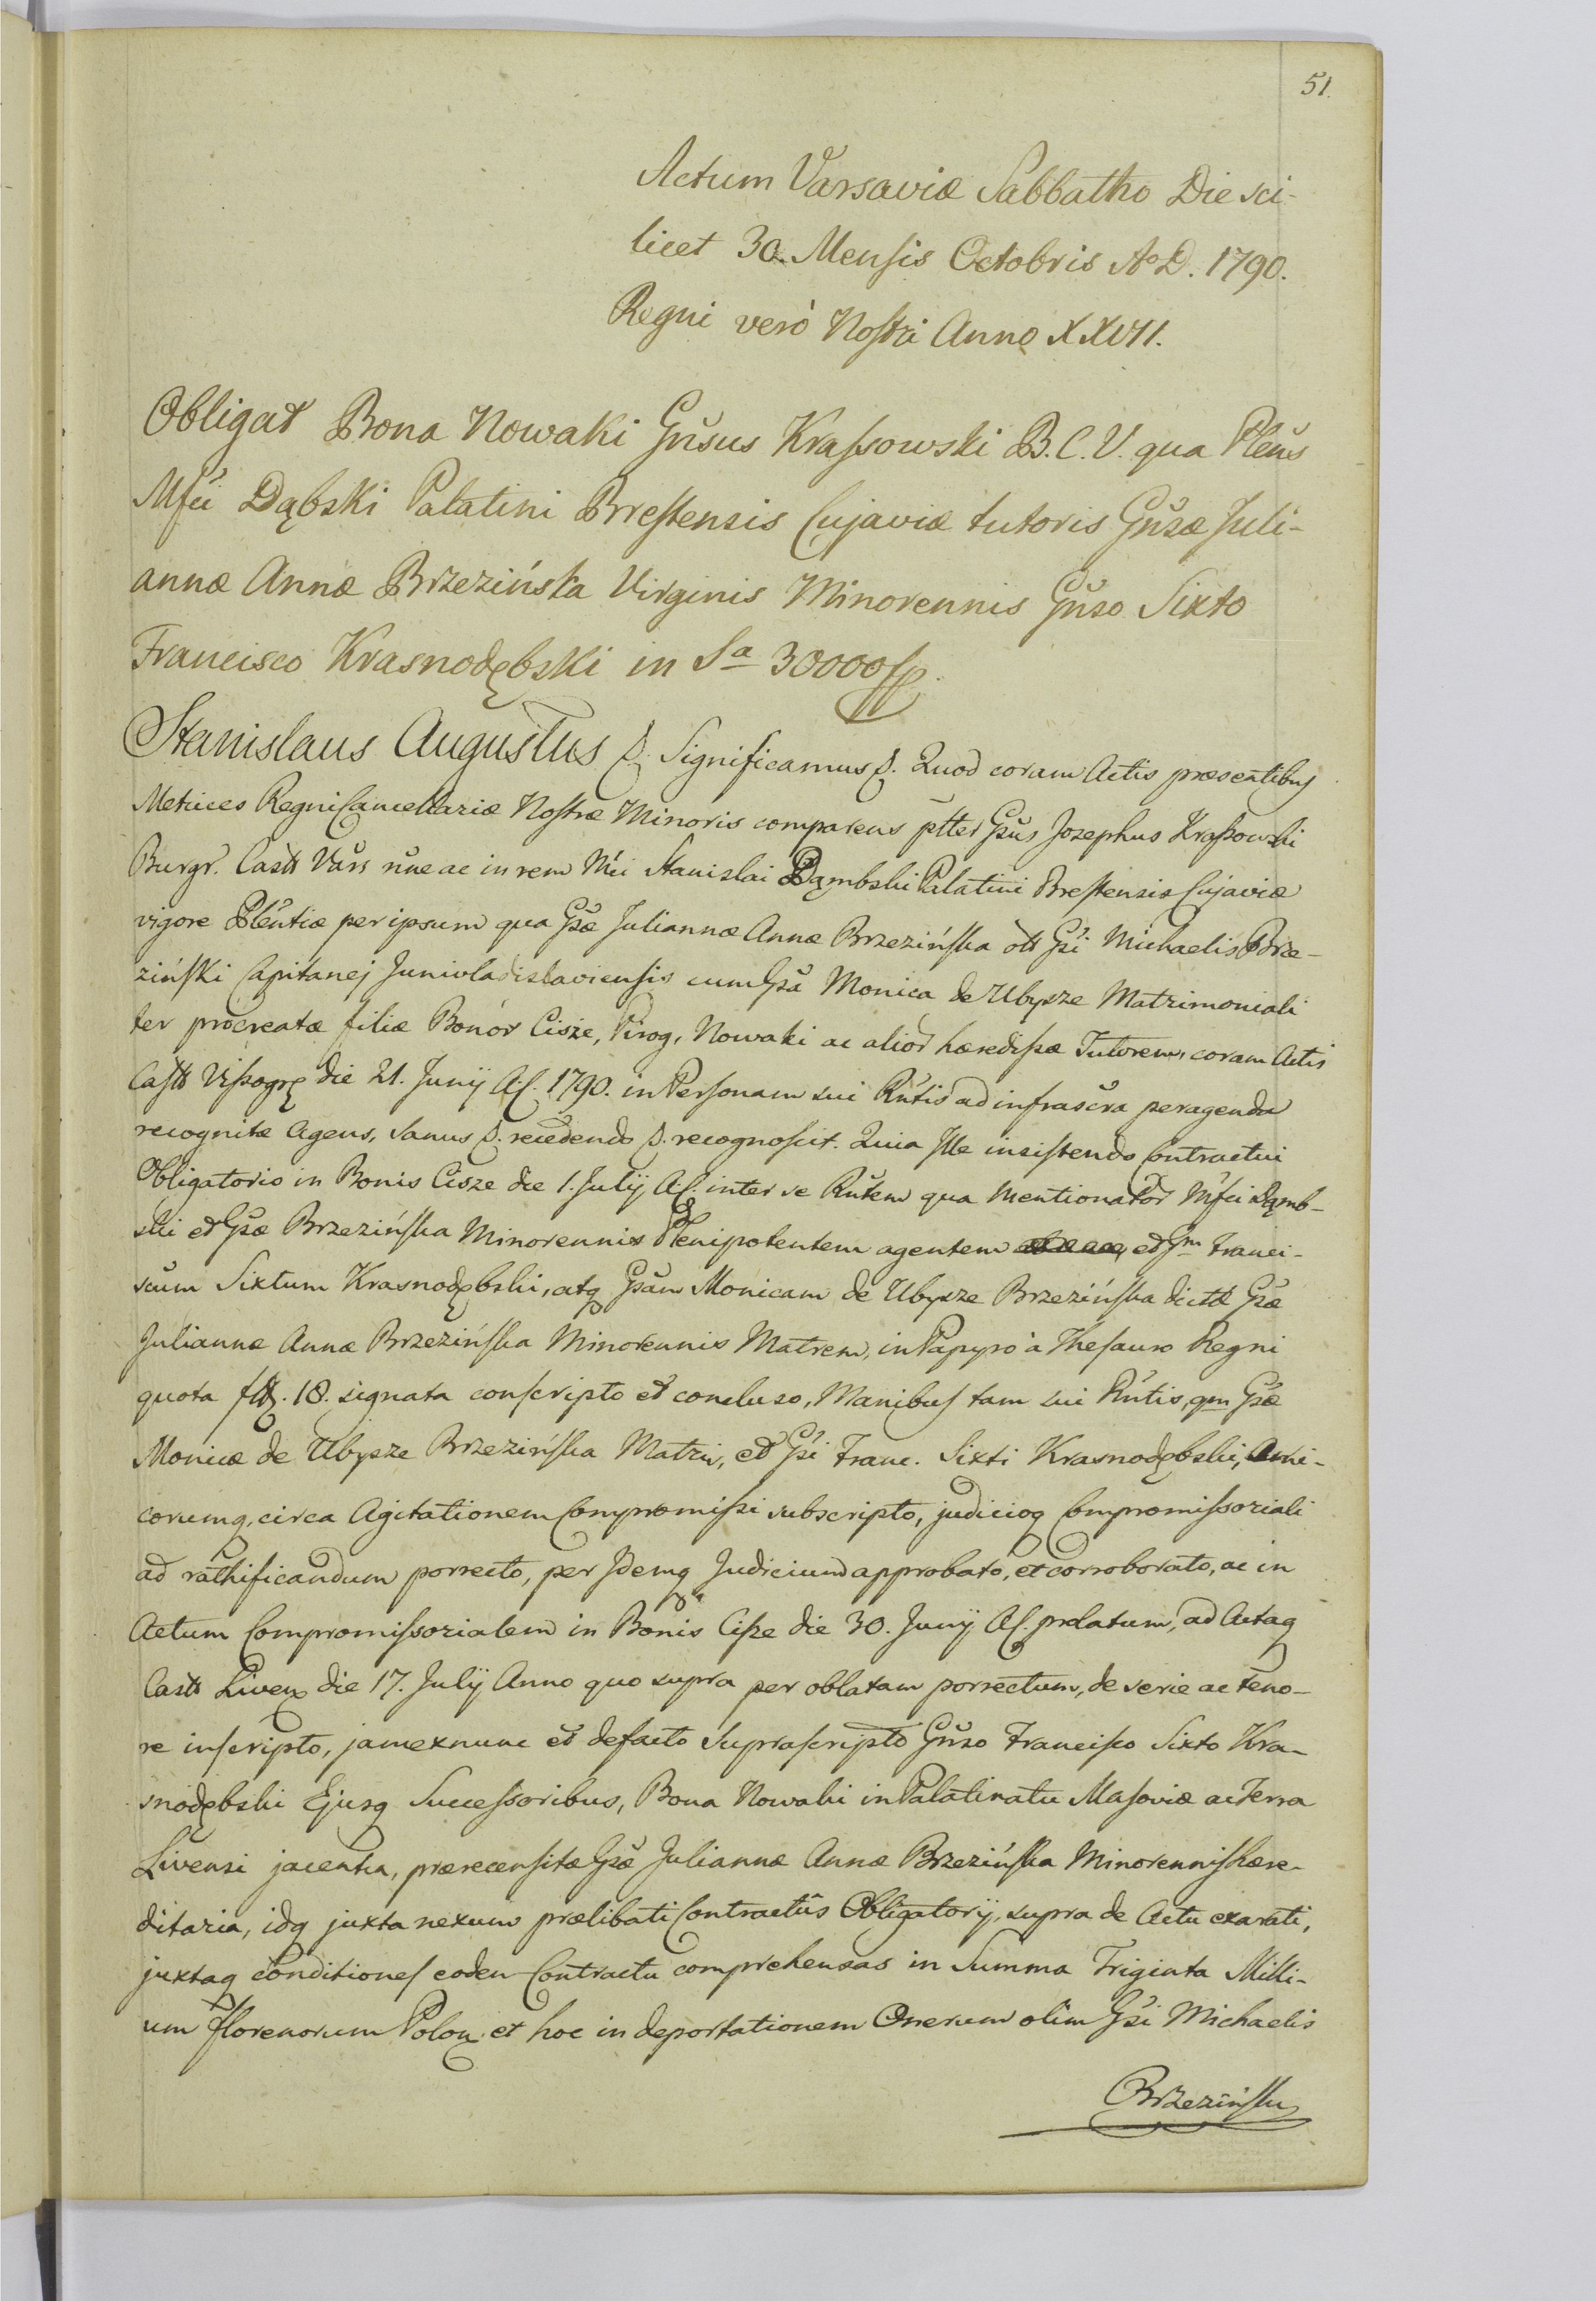 51.
Actum Varsaviæ Sabbatho Die sci-
licet 30. Mensis Octobris Ao D. 1790.
Regni verò Nostri Anno XXVII.
Obligat Bona Nowaki Gnsus Krassowski B. C. V. qua Plens
Mfci Dąbski Palatini Brestensis Cujaviæ tutoris Gnsæ Juli-
annæ Annæ Brzezińska Virginis Minorennis Gnso Sixto
Francisco Krasnodębski in Sa 30000 fp.
Stanislaus Augustus &. Significamus &. Quod coram Actis præsentibus
Metrices Regni Cancellariæ Nostræ Minoris comparens ptter Gsus Josephus Krassowski
Burgr. Castr Vars nne ac in rem Mci Stanislai Dąmbski Palatini Brestensis Cujaviæ
vigore Plentiæ per ipsum qua Gsæ Juliannæ Annæ Brzezińska olt Gsi Michaelis Brze-
ziński Capitanej Junivladislaviensis cum Gsa Monica de Ubysze Matrimoniali
ter procreatæ filiæ Bonor Cisze, Pirog, Nowaki ac alior hæredissæ Tutorem, coram Actis
Castr Vissogr die 21. Junij A C. 1790. in Personam sui Rntis ad infrascra peragenda
recognitæ Agens, sanus &. recedendo &. recognoscit. Quia Ille insistendo Contractui
Obligatorio in Bonis Cisze die 1. Julij A C. inter se Rntem qua mentionator Mfci Dąmb-
ski et Gsæ Brzezińska Minorennis Plenipotentem agentem et Gm Franci-
scum Sixtum Krasnodębski, atq Gsam Monicam de Ubysze Brzezińska dictæ Gsæ
Juliannæ Annæ Brzezińska Minorennis Matrem, in Papyro à Thesauro Regni
quota 18. signata conscripto et concluso, Manibus tam sui Rntis, qm Gsæ
Monicæ de Ubysze Brzezińska Matris, et Gsi Franc. Sixti Krasnodębski, Ami-
corumq, circa Agitationem Compromissi subscripto, judicioq Compromissoriali
ad rathificandum porrecto, per Idemq Judicium approbato, et corroborato, ac in
Actum Compromissorialem in Bonis Cisze die 30. Junij A C. prolatum, ad Actaq
Castr Liven die 17. Julij Anno quo supra per oblatam porrectum, de serie ac teno-
re inscripto, jam ex nunc et de facto suprascripto Gnso Francisco Sixto Kra-
snodębski Ejusq Successoribus, Bona Nowaki in Palatinatu Masoviæ ac Terra
Livensi jacentia, præcensitæ Gsæ Juliannæ Annæ Brzezińska Minorennis hære-
ditaria, idq juxta nexum prælibati Contractûs Obligatorij, supra de Actu exarati,
juxtaq conditiones eodem Contractu comprehensas in Summa Triginta Milli-
um florenorum Polon. et hoc in deportationem Onerum olim Gsi Michaelis
Brzeziński